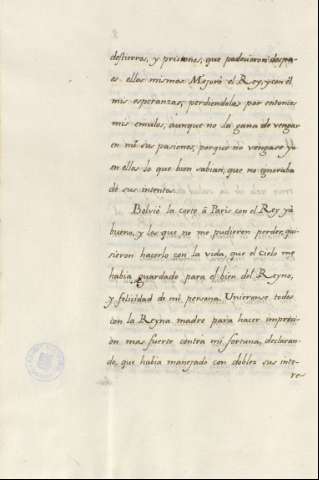 destierros, y prisiones, que padecieron despu-
es ellos mismos. Mejorò el Rey, y con él
mis esperanzas, perdiendolas por entonces
mis emulos, aunque no la gana de vengar
en mi sus pasiones, porque no vengase yo
en ellos lo que bien sabian, que no ignoraba
de sus intentos.
Bolviò la corte à Paris con el Rey yà
bueno, y los que no me pudieron perder, qui-
sieron hacerlo con la vida, que el cielo me
habia guardado para el bien del Reyno,
y felicidad de mi persona. Unieronse todos
con la Reyna madre para hacer impresi-
on mas fuerte contra mi fortuna, declaran-
do, que habia manejado con doblez sus inte-
re-